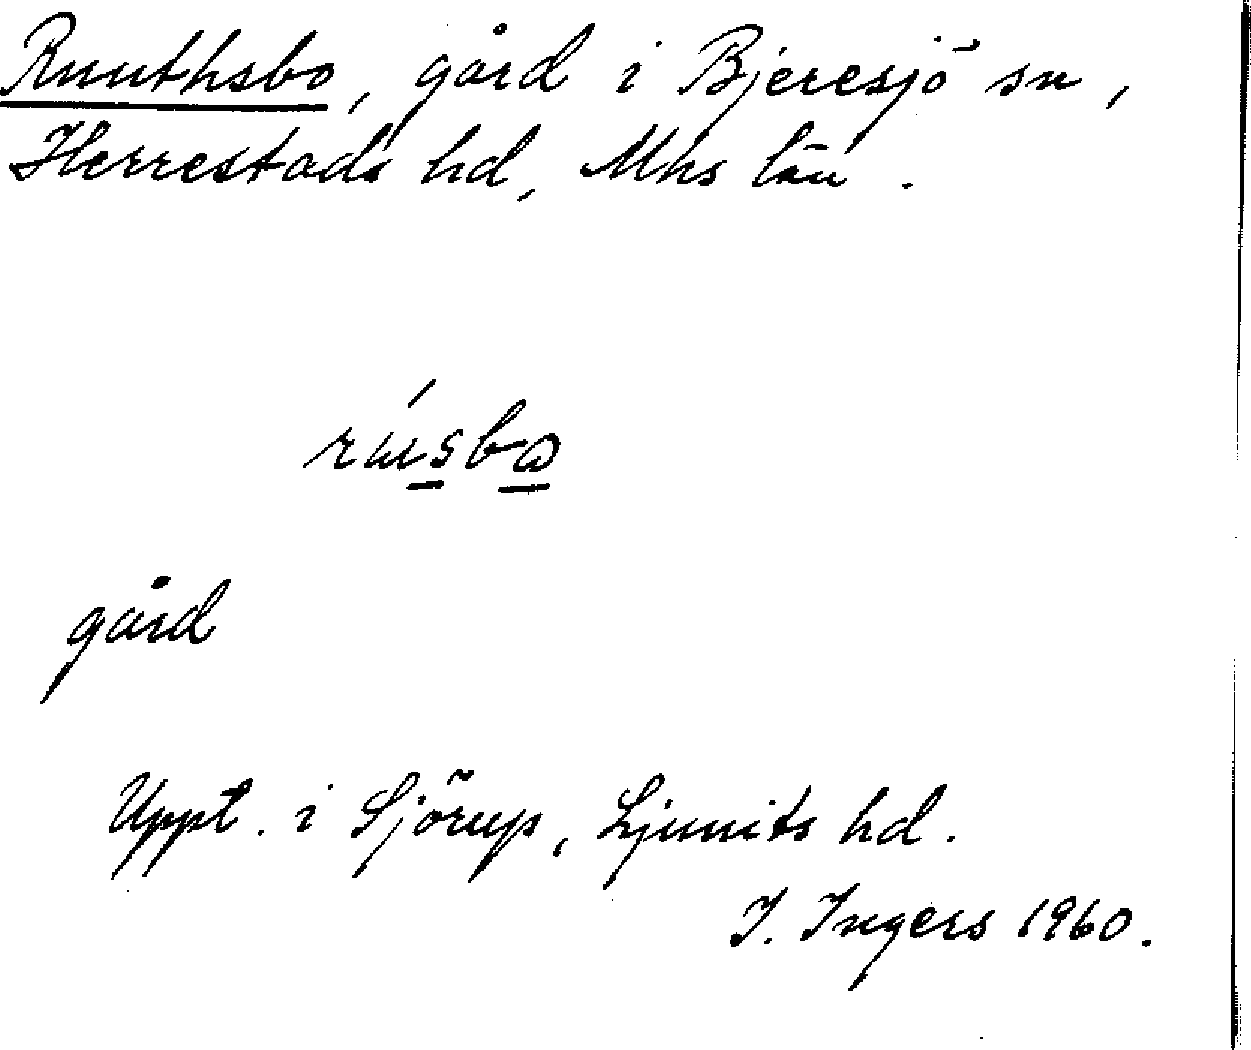 Ruuthsbo, gård i Bjeresjö sn,
Herrestads hd, Mhs län.
rúsbɷ
gård
Uppt. i Sjörup, Ljunits hd.
I. Ingers 1960.